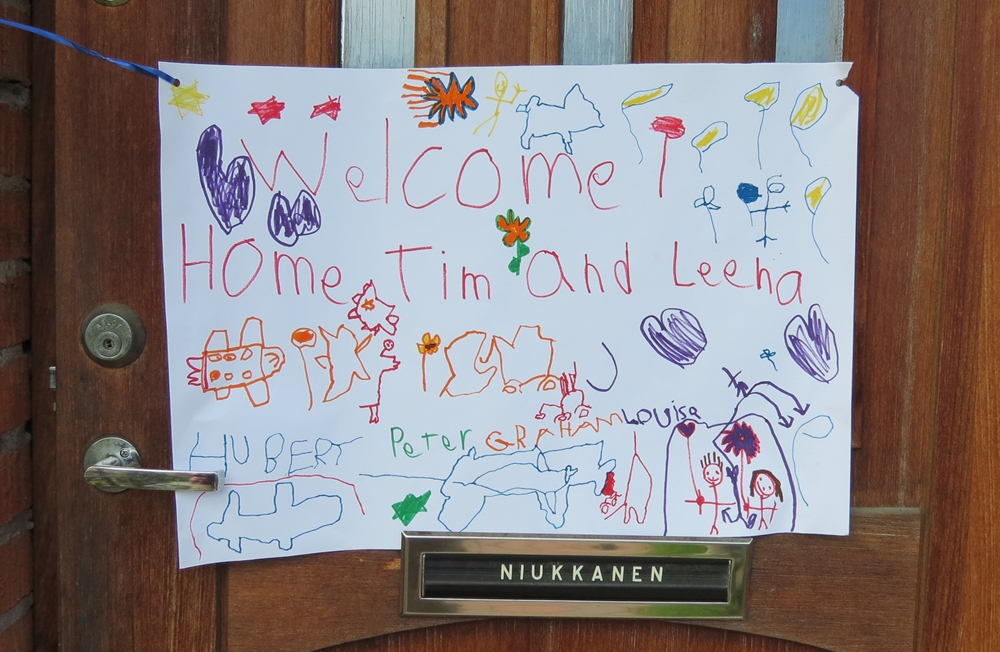 Welcome!
Home Tim and Leena
HUBERT Peter GRAHAM LOUise
NIUKKANEN